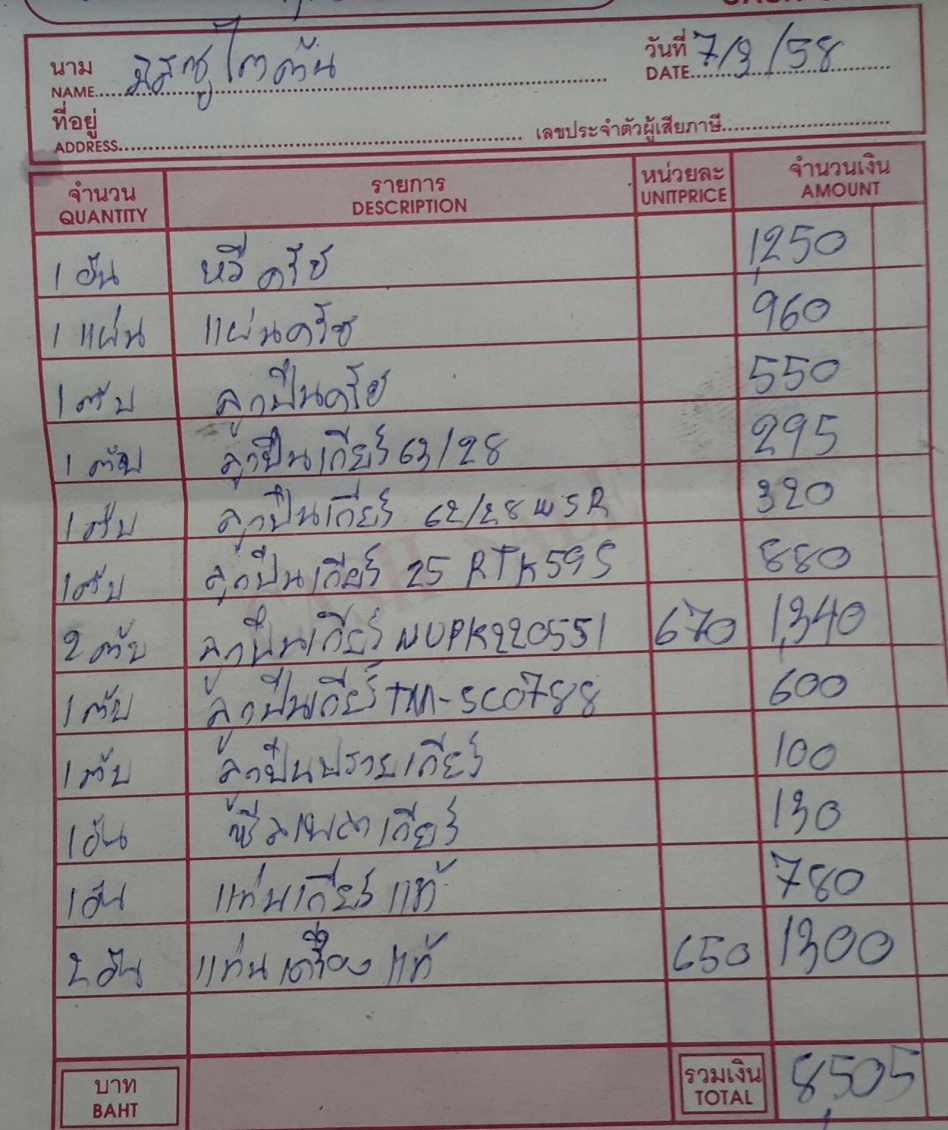 นาม มิสซู ไททัน วันที่ 7/3/58
NAME DATE
ที่อยู่
ADDRESS เลขประจำตัวผู้เสียภาษี
จำนวน รายการ หน่วยละ จำนวนเงิน
QUANTITY DESCRIPTION UNITPRICE AMOUNT
1 อัน หวีครัช 1,250
1 แผ่น แผ่นครัช 960
1 ตับ ลูกปืนครัช 550
1 ตับ ลูกปืนเกียร์ 63/28 295
1 ตับ ลูกปืนเกียร์ 62/28 320
1 ตับ ลูกปืนเกียร์ 25 RTK59S 880
2 ตับ ลูกปืนเกียร์ NUPK220551 670 1,340
1 ตับ ลูกปืนเกียร์ TM-SC0788 600
1 ตับ ลูกปืนปรายเกียร์ 100
1 อัน ซีลเพลาเกียร์ 130
1 อัน แท่นเกียร์ แท้ 780
2 อัน แท่นเครื่อง แท้ 650 1300
CASH SALE
บาท รวมเงิน 8,505
BAHT TOTAL